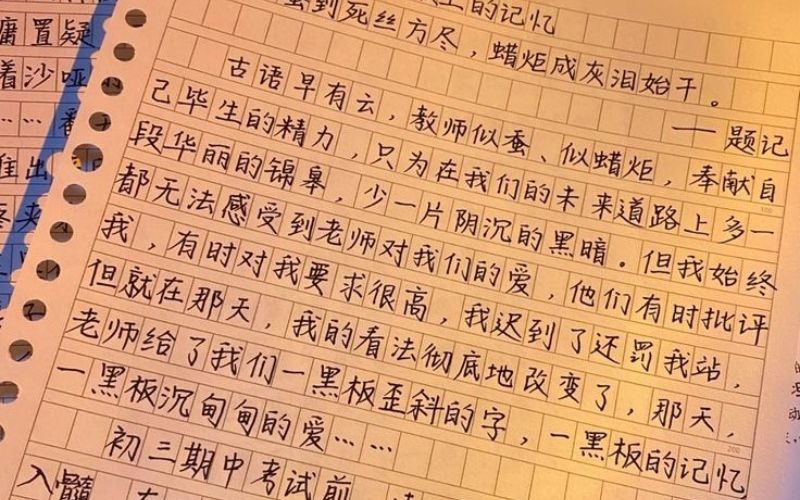 上的记忆
蚕到死丝方尽，蜡炬成灰泪始干。
——题记
古语早有云，教师似蚕、似蜡炬，奉献自
己毕生的精力，只为在我们的未来道路上多一
段华丽的锦皋，少一片阴沉的黑暗。但我始终
都无法感受到老师对我们的爱，他们有时批评
我，有时对我要求很高，我迟到了还罚我站，
但就在那天，我的看法彻底地改变了，那天，
老师给了我们一黑板歪斜的字，一黑板的记忆
一黑板沉甸甸的爱……
初三期中考试前，
入髓
庸置疑
着沙哑
……
出